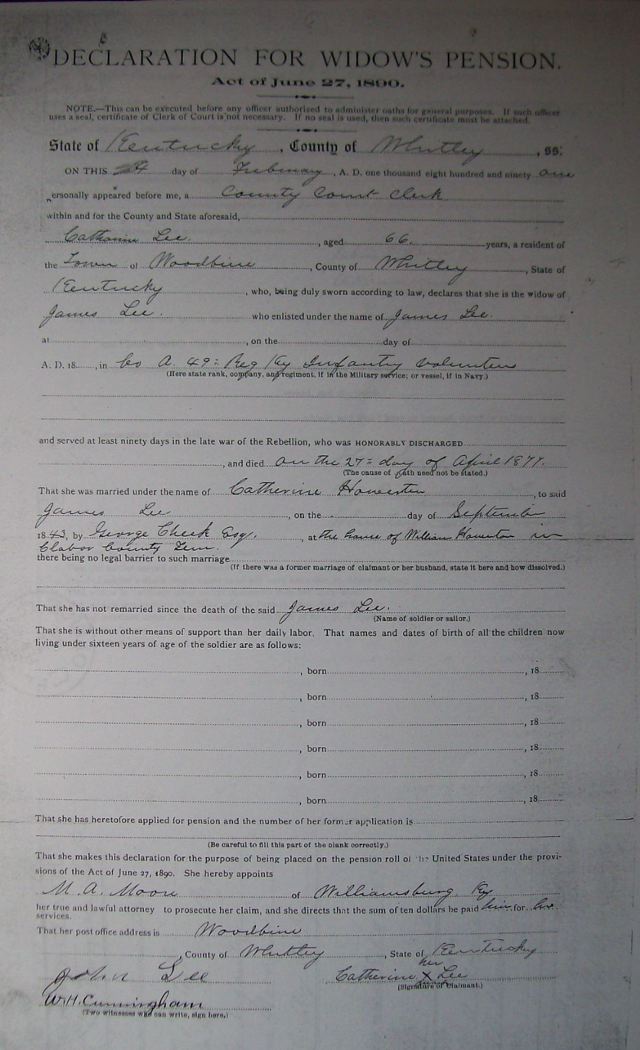 DECLARATION FOR WIDOW'S PENSION.
Act of June 27, 1890.
NOTE.—This can be executed before any officer authorized to administer oaths for general purposes. If such officer
uses a seal, certificate of Clerk of Court is not necessary. If no seal is used, then such certificate must be attached.
State of Kentucky, County of Whitley, ss:
ON THIS 24 day of Febuary, A. D. one thousand eight hundred and ninety one
personally appeared before me, a County Court Clerk
within and for the County and State aforesaid,
Catharine Lee, aged 66 years, a resident of
the Town of Woodbine, County of Whitley, State of
Kentucky, who, being duly sworn according to law, declares that she is the widow of
James Lee who enlisted under the name of James Lee
at , on the day of
A. D. 18 , in Co A. 49= Reg Ky Infantry Volunteers
(Here state rank, company, and regiment, if in the Military service; or vessel, if in Navy.)
and served at least ninety days in the late war of the Rebellion, who was HONORABLY DISCHARGED
, and died on the 27= day of April 1877.
(The cause of death need not be stated.)
That she was married under the name of Catherine Howerton, to said
James Lee, on the day of September
1843, by George Cheek Esqr., at the house of William Howerton in
Clabor County Tenn.
there being no legal barrier to such marriage
(If there was a former marriage of claimant or her husband, state it here and how dissolved.)
That she has not remarried since the death of the said James Lee.
(Name of soldier or sailor.)
That she is without other means of support than her daily labor. That names and dates of birth of all the children now
living under sixteen years of age of the soldier are as follows:
, born , 18
, born , 18
, born , 18
, born , 18
, born , 18
, born , 18
That she has heretofore applied for pension and the number of her former application is
(Be careful to fill this part of the blank correctly.)
That she makes this declaration for the purpose of being placed on the pension roll of the United States under the provi-
sions of the Act of June 27, 1890. She hereby appoints
M. A. Moore of Williamsburg Ky
her true and lawful attorney to prosecute her claim, and she directs that the sum of ten dollars be paid him for
services.
That her post office address is Woodbine
, County of Whitley, State of Kentucky
her
John Lee Catherine X Lee
(Signature of Claimant.)
W.H. Cunningham
(Two witnesses who can write, sign here.)